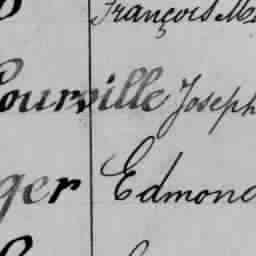 François M
Courville Joseph
ger Edmond